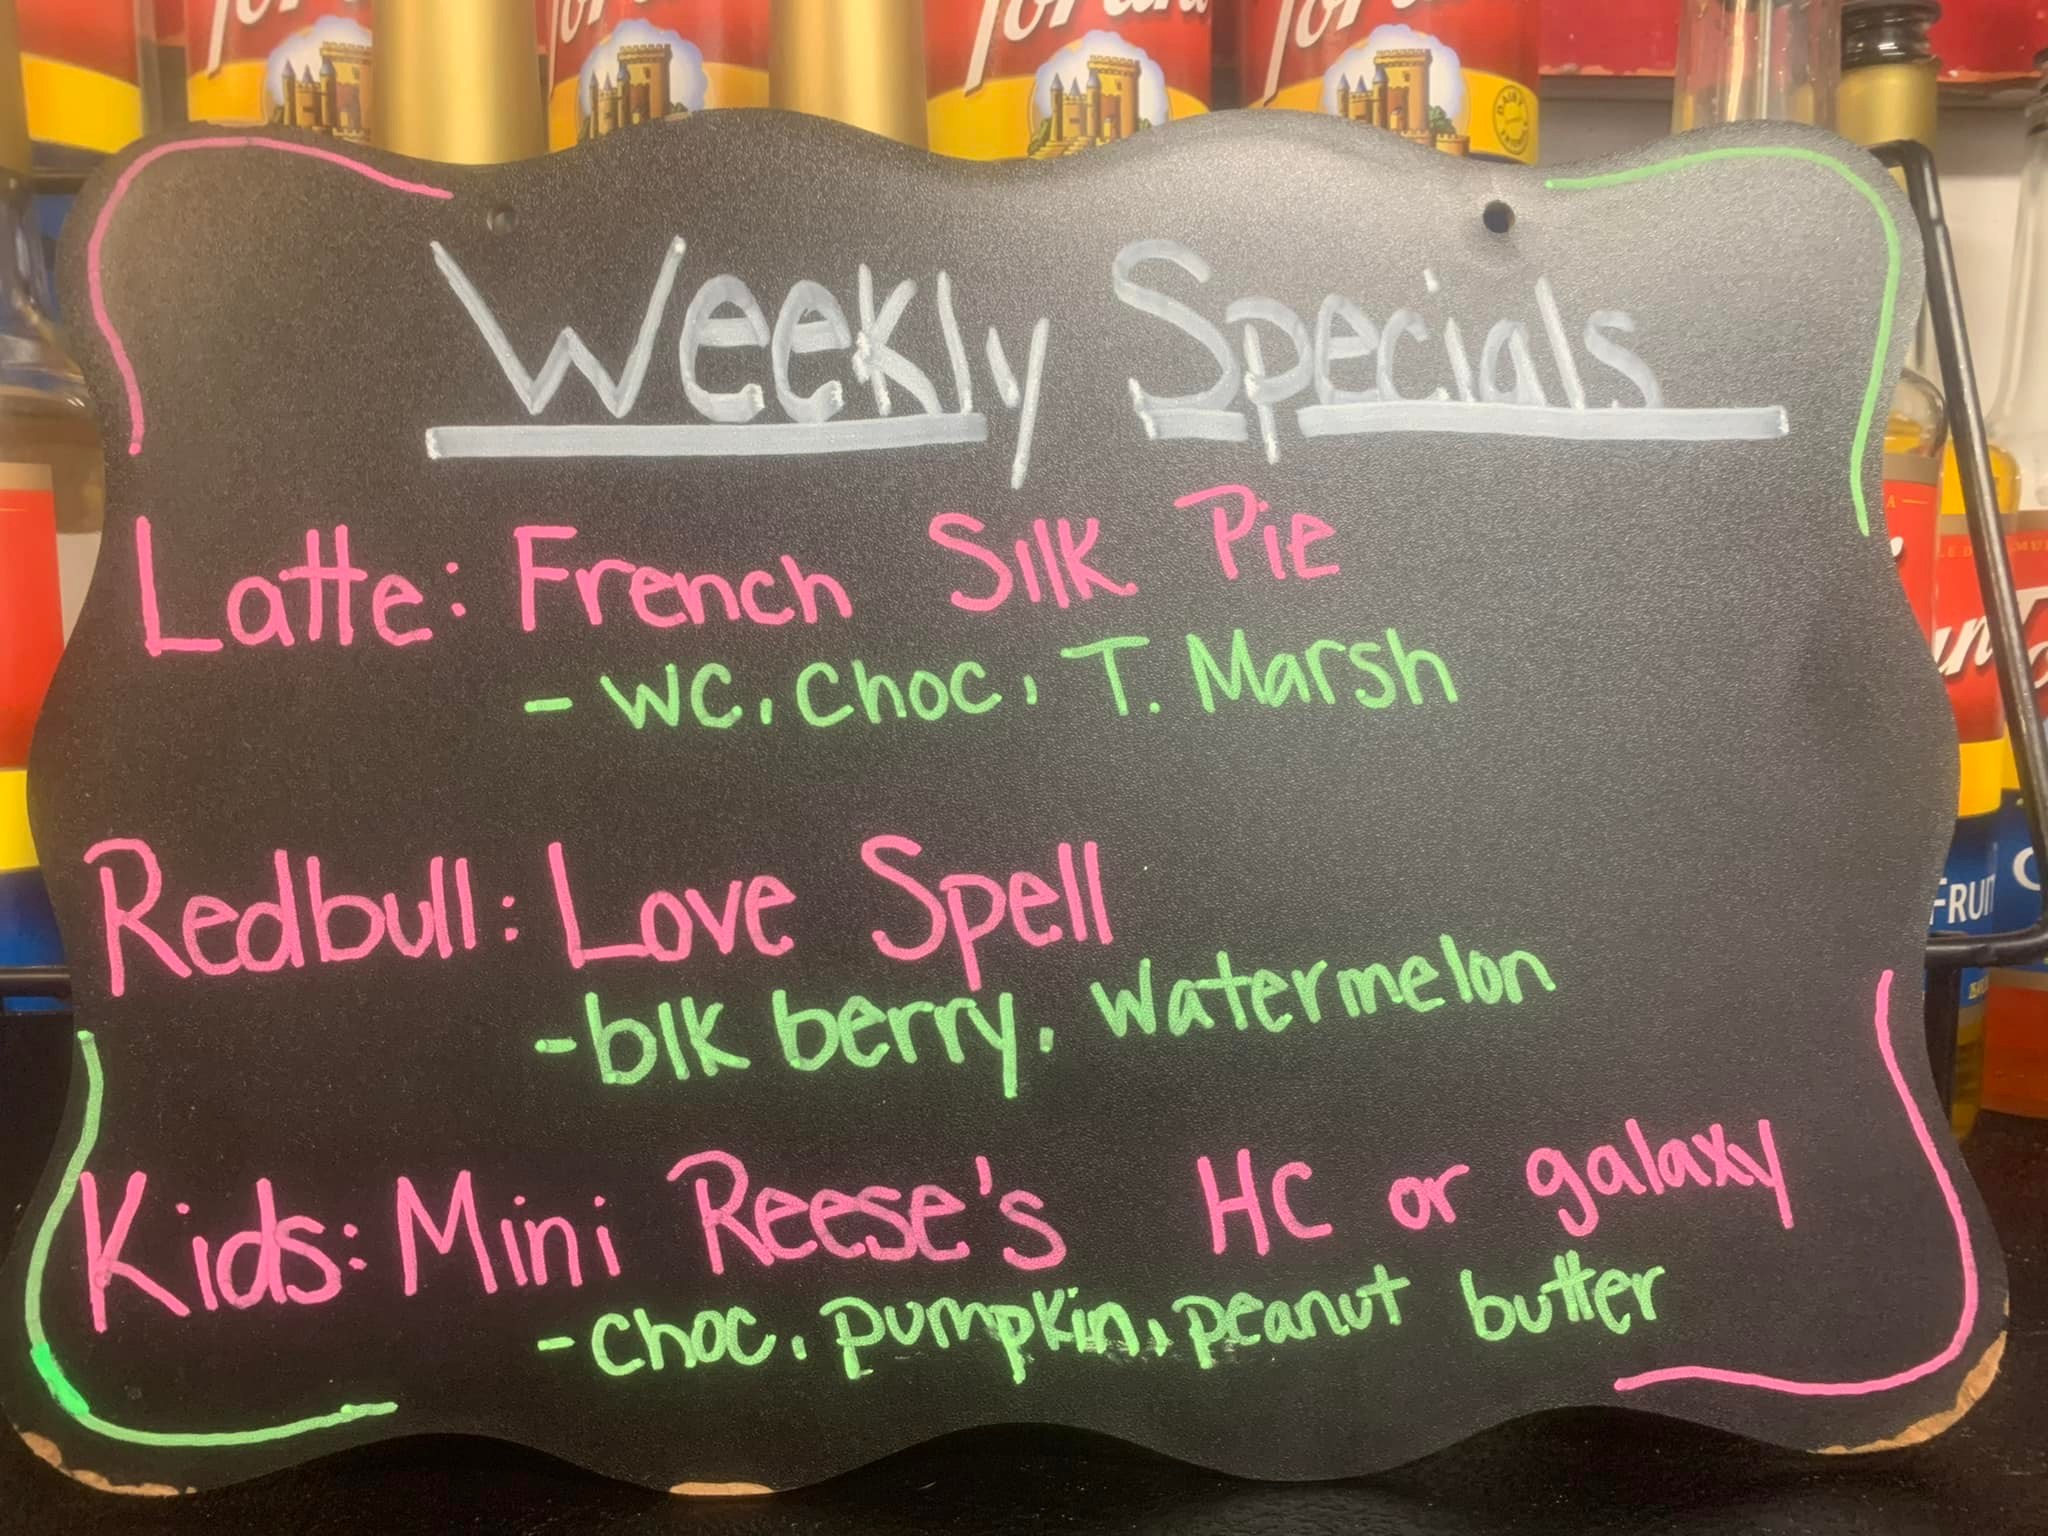 Torani
Torani
Torani
Torani
Weekly Specials
Latte: French Silk Pie
- WC, Choc, T. Marsh
Redbull: Love Spell
- blk berry, Watermelon
Kids: Mini Reese's HC or galaxy
- Choc, pumpkin, peanut butter
FRUIT